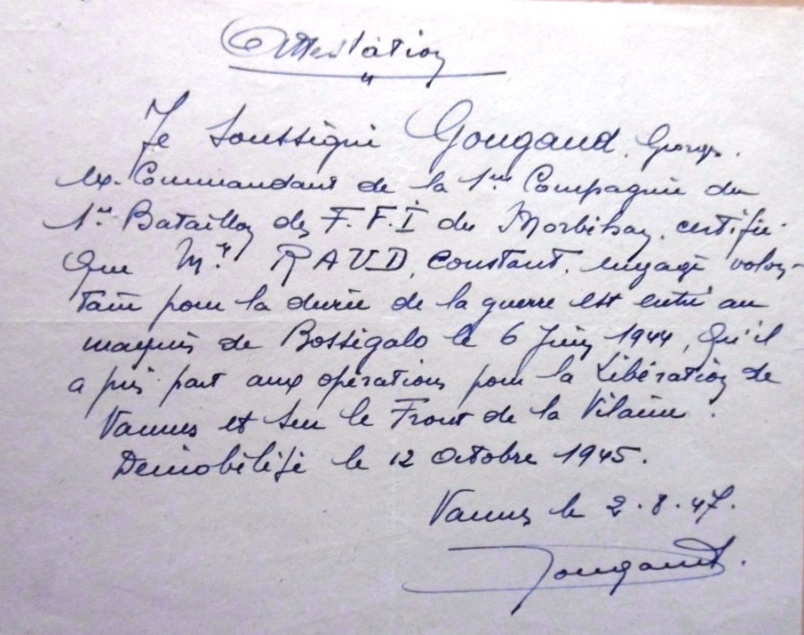 Attestation
Je soussigné Gougaud, Georges.
ex-Commandant de la 1ère Compagnie du
1er Bataillon des F.F.I du Morbihan, certifie
que Mr RAUD, Constant, engagé volon-
taire pour la durée de la guerre est entré au
maquis de Bosségalo le 6 Juin 1944, qu'il
a pris part aux opérations pour la Libération de
Vannes et sur le Front de la Vilaine.
Démobilisé le 12 Octobre 1945.
Vannes le 2.8.47.
Gougaud.